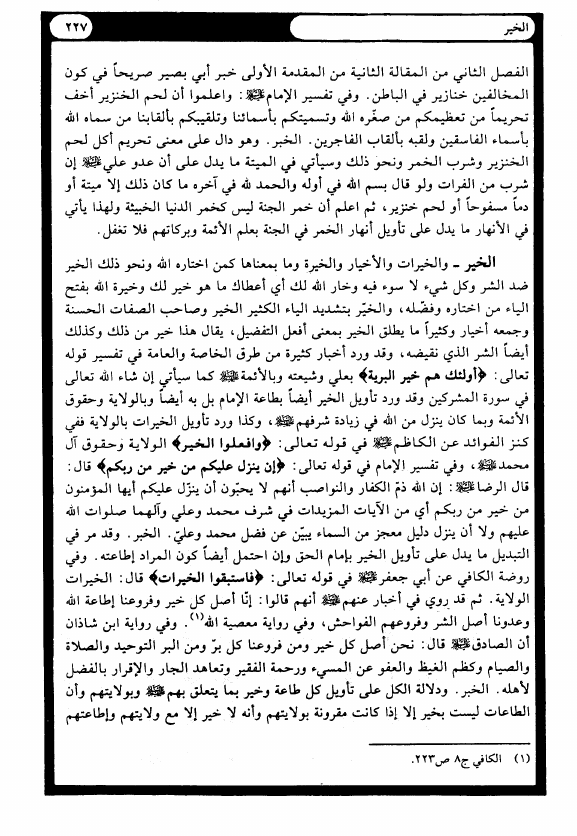 الخير
٢٢٧
الفصل الثاني من المقالة الثانية من المقدمة الأولى خبر أبي بصير صريحاً في كون
المخالفين خنازير في الباطن. وفي تفسير الإمام ﵇: واعلموا أن لحم الخنزير أخف
تحريماً من تعظيمكم من صغّره الله وتسميتكم بأسمائنا وتلقيبكم بألقابنا من سماه الله
بأسماء الفاسقين ولقبه بألقاب الفاجرين. الخبر. وهو دال على معنى تحريم أكل لحم
الخنزير وشرب الخمر ونحو ذلك وسيأتي في الميتة ما يدل على أن عدو علي ﵇ إن
شرب من الفرات ولو قال بسم الله في أوله والحمد لله في آخره ما كان ذلك إلا ميتة أو
دماً مسفوحاً أو لحم خنزير، ثم اعلم أن خمر الجنة ليس كخمر الدنيا الخبيثة ولهذا يأتي
في الأنهار ما يدل على تأويل أنهار الخمر في الجنة بعلم الأئمة وبركاتهم فلا تغفل.
الخير ـ والخيرات والأخيار والخيرة وما بمعناها كمن اختاره الله ونحو ذلك الخير
ضد الشر وكل شيء لا سوء فيه وخار الله لك أي أعطاك ما هو خير لك وخيرة الله بفتح
الياء من اختاره وفضّله، والخيّر بتشديد الياء الكثير الخير وصاحب الصفات الحسنة
وجمعه أخيار وكثيراً ما يطلق الخير بمعنى أفعل التفضيل، يقال هذا خير من ذلك وكذلك
أيضاً الشر الذي نقيضه، وقد ورد أخبار كثيرة من طرق الخاصة والعامة في تفسير قوله
تعالى: ﴿أولئك هم خير البرية﴾ بعلي وشيعته وبالأئمة ﵈ كما سيأتي إن شاء الله تعالى
في سورة المشركين وقد ورد تأويل الخير أيضاً بطاعة الإمام بل به أيضاً وبالولاية وحقوق
الأئمة وبما كان ينزل من الله في زيادة شرفهم ﵈، وكذا ورد تأويل الخيرات بالولاية ففي
كنز الفوائد عن الكاظم ﵇ في قوله تعالى: ﴿وافعلوا الخير﴾ الولاية وحقوق آل
محمد ﵈، وفي تفسير الإمام في قوله تعالى: ﴿إن ينزل عليكم من خير من ربكم﴾ قال:
قال الرضا ﵇: إن الله ذمّ الكفار والنواصب أنهم لا يحبّون أن ينزّل عليكم أيها المؤمنون
من خير من ربكم أي من الآيات المزيدات في شرف محمد وعلي وآلهما صلوات الله
عليهم ولا أن ينزل دليل معجز من السماء يبيّن عن فضل محمد وعليّ. الخبر. وقد مر في
التبديل ما يدل على تأويل الخير بإمام الحق وإن احتمل أيضاً كون المراد إطاعته. وفي
روضة الكافي عن أبي جعفر ﵇ في قوله تعالى: ﴿فاستبقوا الخيرات﴾ قال: الخيرات
الولاية. ثم قد روي في أخبار عنهم ﵈ أنهم قالوا: إنّا أصل كل خير وفروعنا إطاعة الله
وعدونا أصل الشر وفروعهم الفواحش، وفي رواية معصية الله(١). وفي رواية ابن شاذان
أن الصادق ﵇ قال: نحن أصل كل خير ومن فروعنا كل برّ ومن البر التوحيد والصلاة
والصيام وكظم الغيظ والعفو عن المسيء ورحمة الفقير وتعاهد الجار والإقرار بالفضل
لأهله. الخبر. ودلالة الكل على تأويل كل طاعة وخير بما يتعلق بهم ﵈ وبولايتهم وأن
الطاعات ليست بخير إلا إذا كانت مقرونة بولايتهم وأنه لا خير إلا مع ولايتهم وإطاعتهم
(١) الكافي ج٨ ص٢٢٣.